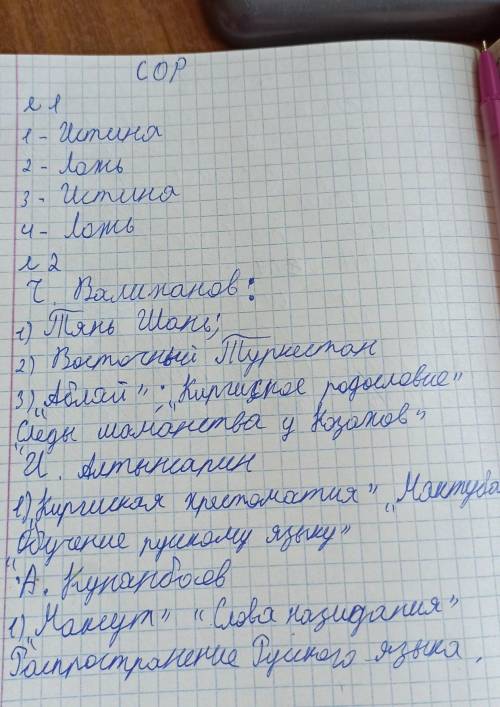 СОР
№ 1
1 - Истина
2 - Ложь
3 - Истина
4 - Ложь
№ 2
Ч. Валиханов:
1) Тянь Шань;
2) Восточный Туркестан
3) „Аблай"; „Киргизкое родословие"
„Следы шаманства у козахов"
И. Алтынсарин
1) „Киргиская хрестоматия" „Мактуба
„Обучение рускому языку"
А. Кунанбаев
1) „Максут" „Слова назидания"
Распространение Руского языка.